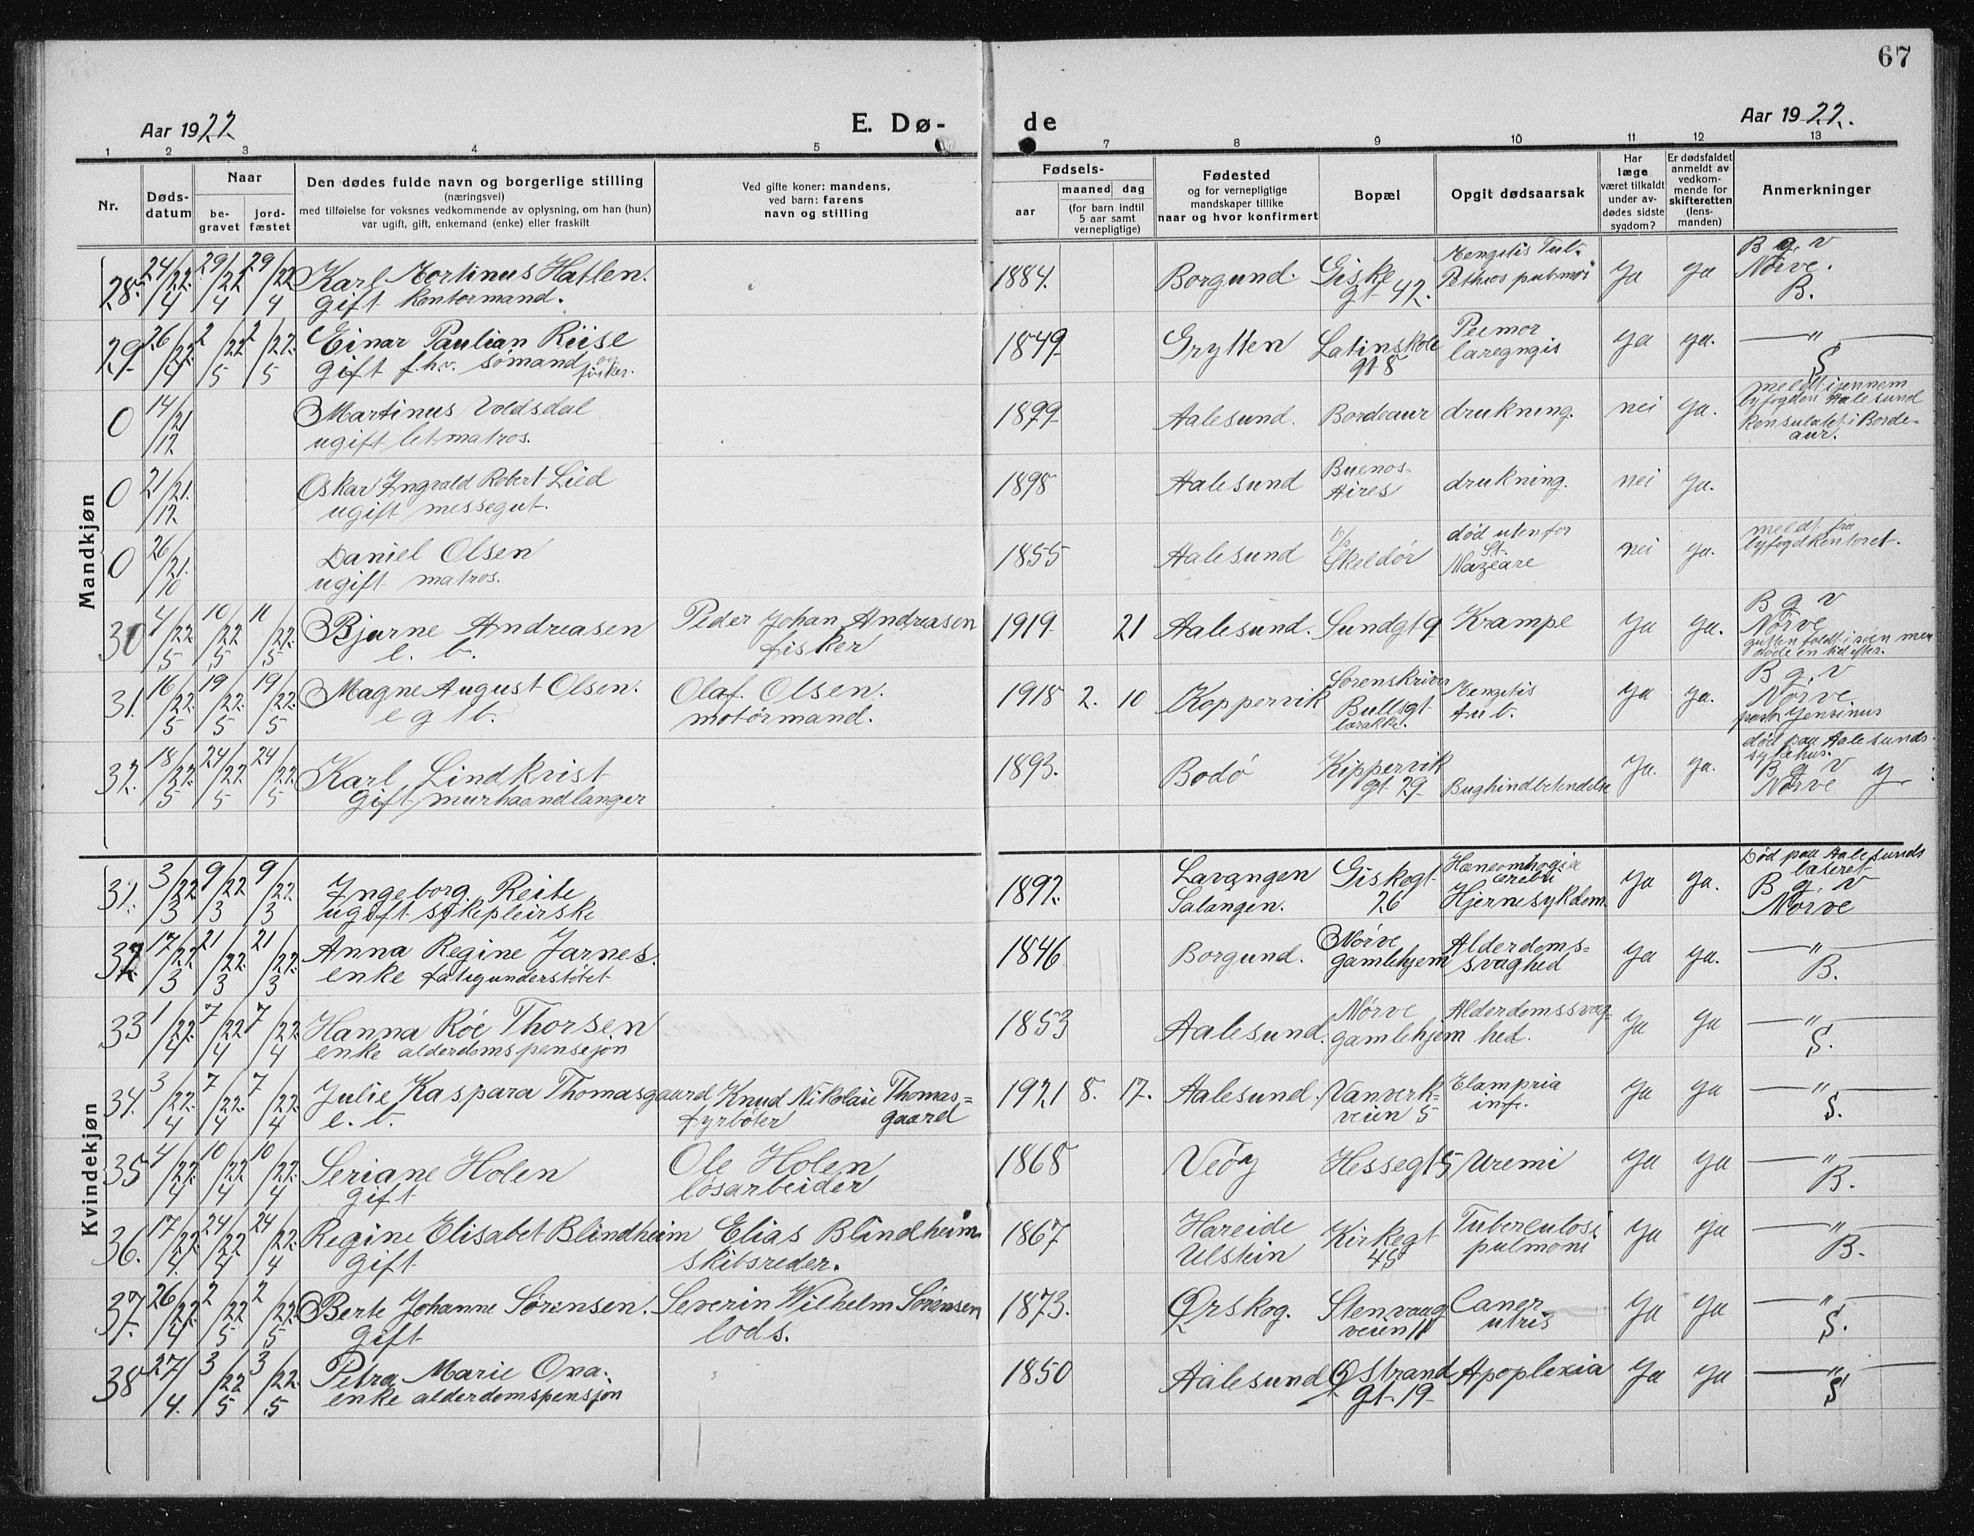 67
Aar 1922
E. Dø-
de
Aar 1922.
1 2 3 4 5 7 8 9 10 11 12 13
Nr.
Døds-
datum
Naar
be-
gravet
jord-
fæstet
Den dødes fulde navn og borgerlige stilling
(næringsvei)
med tilføielse for voksnes vedkommende av oplysning, om han (hun)
var ugift, gift, enkemand (enke) eller fraskilt
Ved gifte koner: mandens,
ved barn: farens
navn og stilling
Fødsels-
aar
maaned
dag
(for barn indtil
5 aar samt
vernepligtige)
Fødested
og for vernepligtige
mandskaper tillike
naar og hvor konfirmert
Bopæl
Opgit dødsaarsak
Har
læge
været tilkaldt
under av-
dødes sidste
sygdom?
Er dødsfaldet
anmeldt av
vedkom-
mende for
skifteretten
(lens-
manden)
Anmerkninger
Mandkjøn
28. 24/4 22. 29/4 22 29/4 22 Karl Mortinus Hatlen. 1884. Borgund. Giske Ja ja B g, v
gift kontormand. gt 42. Nørve.
B.
29 26/4 22 2/5 22 2/5 22. Einar Paulian Riise 1849 Grytten Latinskole ya ya. — " —
gift f.h.v. sømand og fisker. gt 8 S
0 14/12 21 Martinus Voldsdal 1899 Aalesund. Bordeaux drukning. nei ya. meldt ijennem
ugift letmatros. byfogden Aalesund
konsulatet i Borde-
aux.
0 21/12 21. Oskar Ingvald Robert Lied 1898 Aalesund Buenos- drukning. nei ya.
ugift messegut. Aires
0 26/10 21. Daniel Olsen 1855 Aalesund Skeldør død utenfor nei ya. meldt fra
ugift matros. St. Nazeare byfogdkontoret.
30 4/5 22 10/5 22 11/5 22. Bjarne Andreasen Peder Johan Andreasen 1919 21 Aalesund. Sundgt 9 Krampe ya ya. B g, v
e. b. fisker Nørve
31. 16/5 22 19/5 22. 19/5 22. Magne August Olsen. Olaf Olsen. 1918 2. 10 Koppervik Sorenskriver Mengitis ya ya. B g, v
e g t b. motørmand. Bullsgt Nørve
32. 18/5 22. 24/5 22. 24/5 22. Karl Lindkvist 1893. Bodø Kippervik Bughindbetendelse ya. ya. død paa Aalesunds
gift, murhaandlanger gt 29 sykehus.
B g, v
Nørve
Kvindekjøn
31. 3/3 22 9/3 22 9/3 22. Ingeborg Reite 1892. Lavangen Giskegt ya ya. Død paa Aalesunds
ugift sykepleirske Salangen. 26 Hjernesykdom. B g, v
Nørve
32 17/3 22 21/3 22 21/3 22. Anna Regine Jarnes. 1846 Borgund. Nørve Alderdoms- ya ya. — " —
enke fatigunderstøtet gamlehjem svaghed B.
33 1/4 22. 7/4 22 7/4 22. Hanna Røe Thorsen 1853 Aalesund. Nørve Alderdomssvag- ya ya — " —
enke alderdomspensjon gamlehjem hed. S.
34. 3/4 22. 7/4 22. 7/4 22. Julie Kaspara Thomasgaard Knud Nikolaie Thomas= 1921 8. 17. Aalesund. Vanverk- ya ya — " —
e. b. fyrbøter gaard veien 5 S.
35 4/4 22. 10/4 22. 10/4 22. Seriane Holen Ole Holen 1868 Veøy Hessegt 5 Uremi ya ya — " —
gift løsarbeider B.
36. 17/4 22. 24/4 22 24/4 22. Regine Elisabet Blindheim Elias Blindheim. 1867 Hareide Kirkegt Tuberculosi ya ja — " —
gift skibsreder. Ulstein 45 pulmoni B.
37. 26/4 22. 2/5 22 2/5 22. Berte Johanne Sørensen. Severin Wilhelm Sørensen 1873. Ørskog. Stenvaag Cancr ya ya — " —
gift lods. veien 11 utris S.
38 27/4 3/5 22 3/5 22. Petra Marie Ona. 1850 Aalesund Ø Strand Apoplexia ya ya — " —
enke alderdomspensjon gt. 19 S